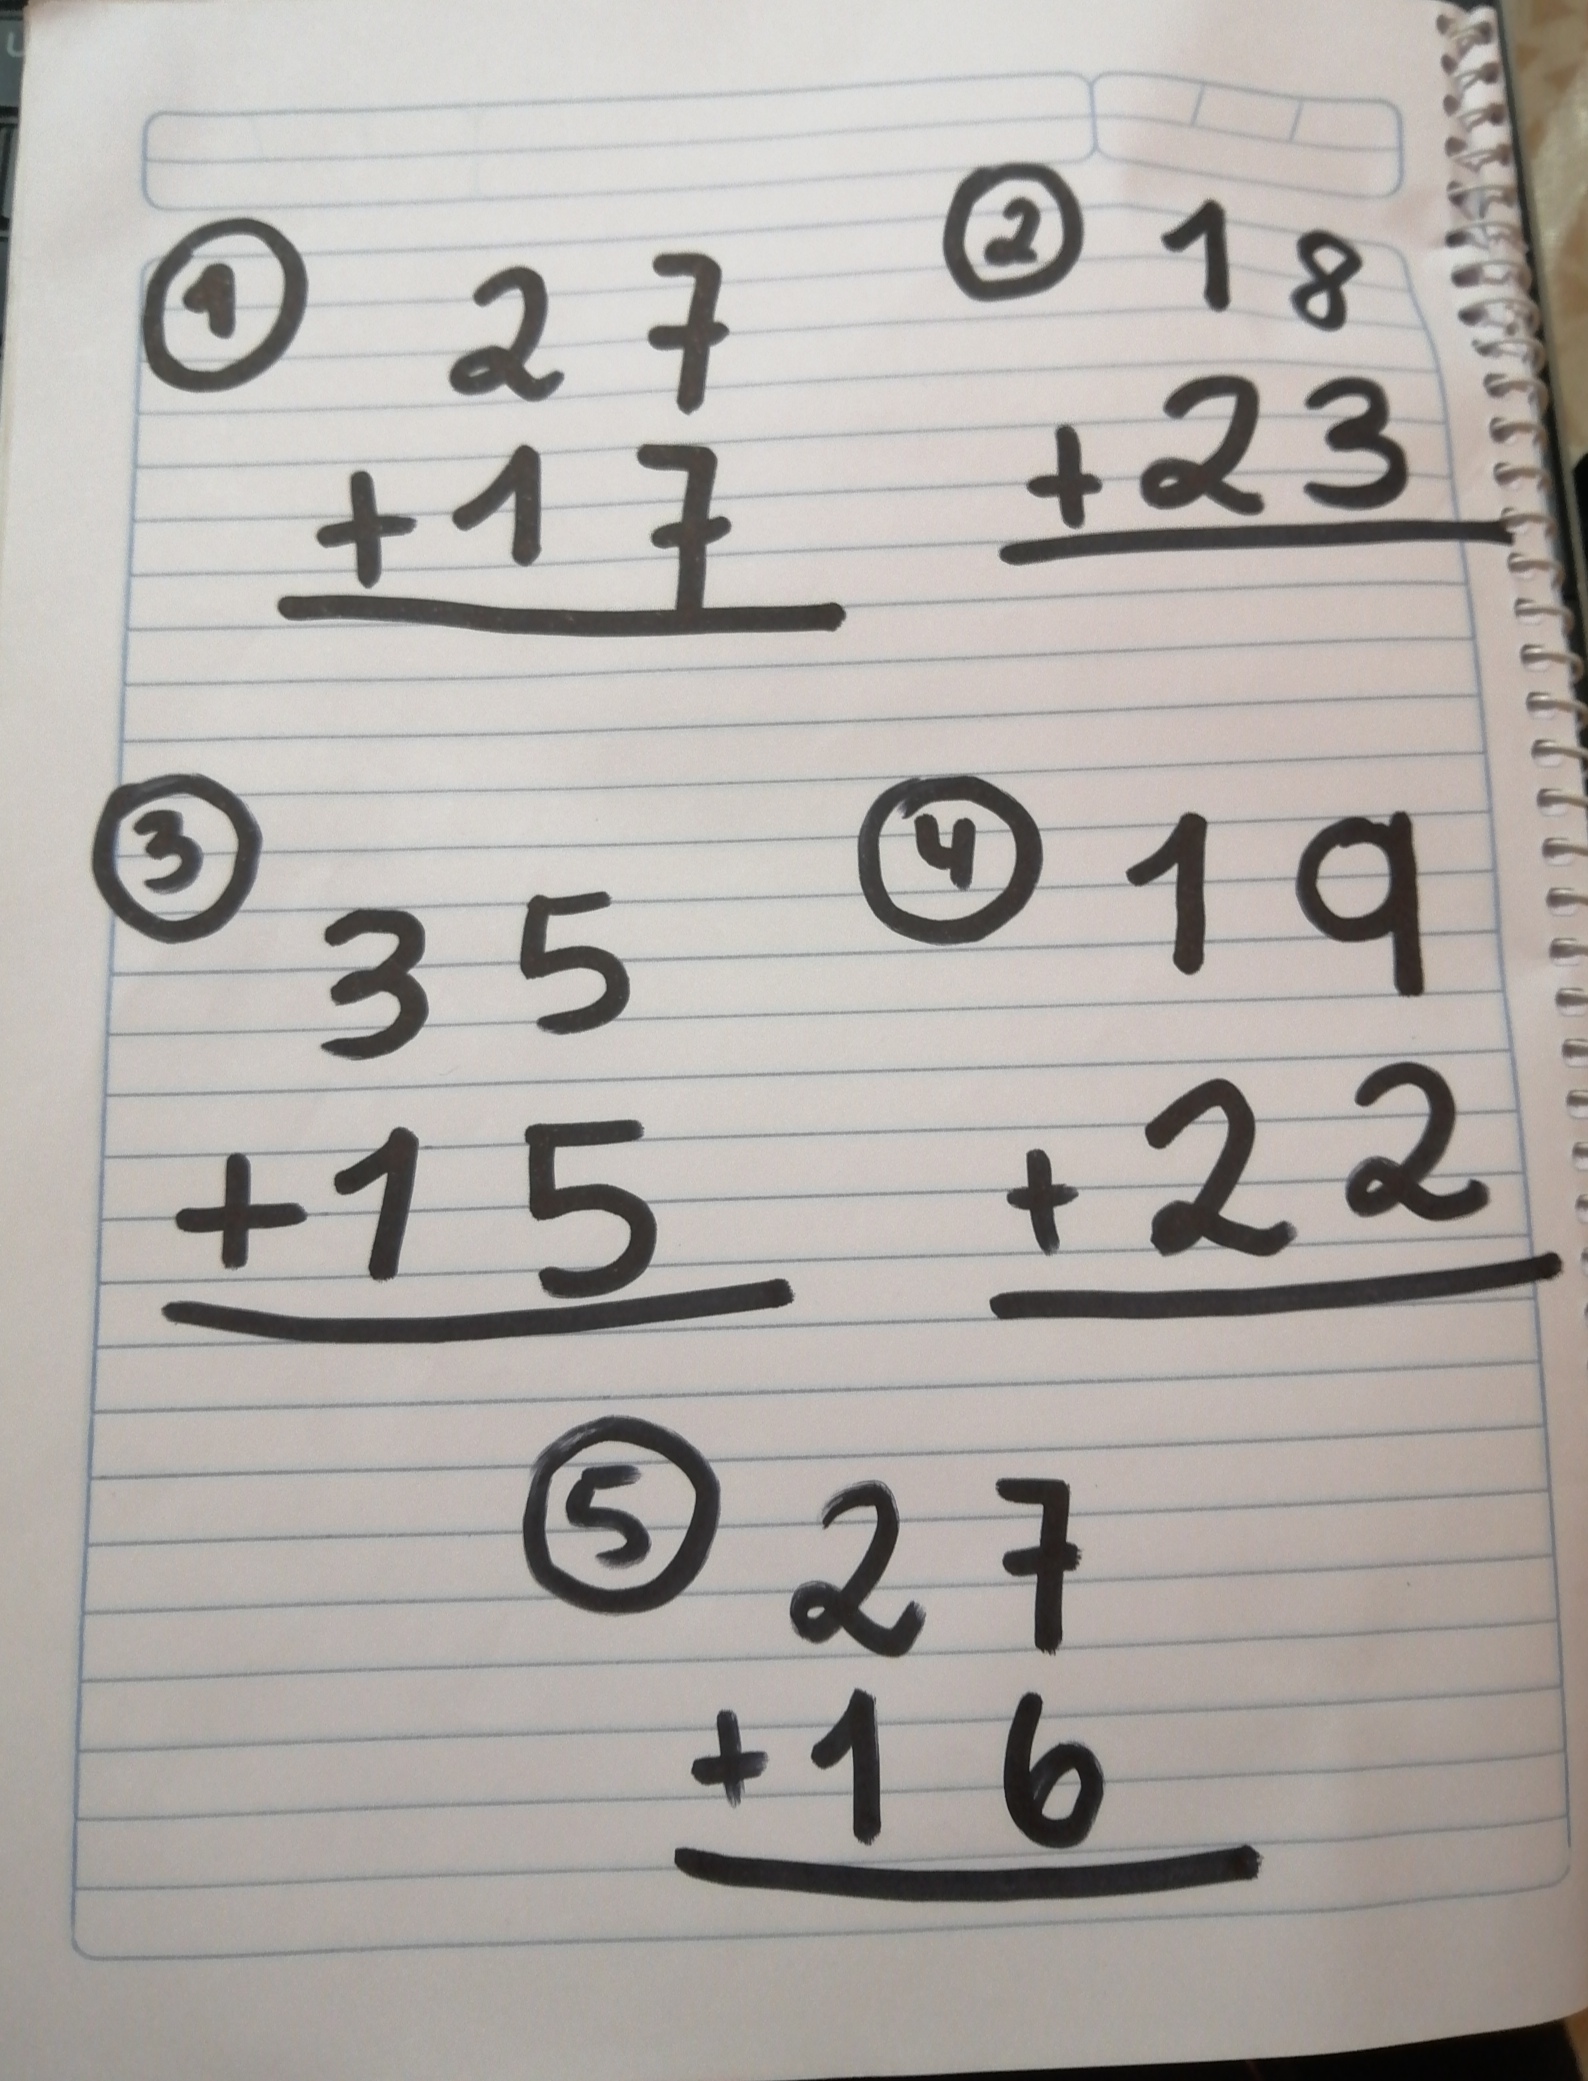 ① 27
+17
② 18
+23
③ 35
+15
④ 19
+22
⑤ 27
+16